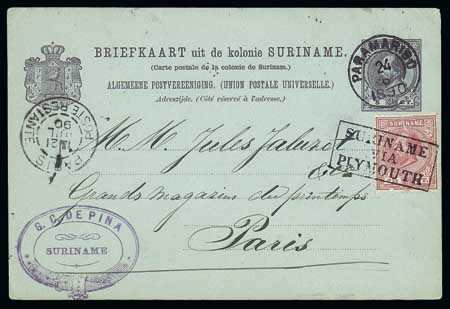 BRIEFKAART uit de kolonie SURINAME.
(Carte postale de la colonie de Surinam.)
ALGEMEENE POSTVEREENIGING. (UNION POSTALE UNIVERSELLE.)
Adreszijde. (Côté réservé à l'adresse.)
PARAMARIBO
24
PARIS
POSTE RESTANTE
90
SURINAME
SURINAME
VIA
PLYMOUTH
M. M. Jules Jaluzot
& Co
Grands magasins du printemps
Paris
G. C. DE PINA
SURINAME